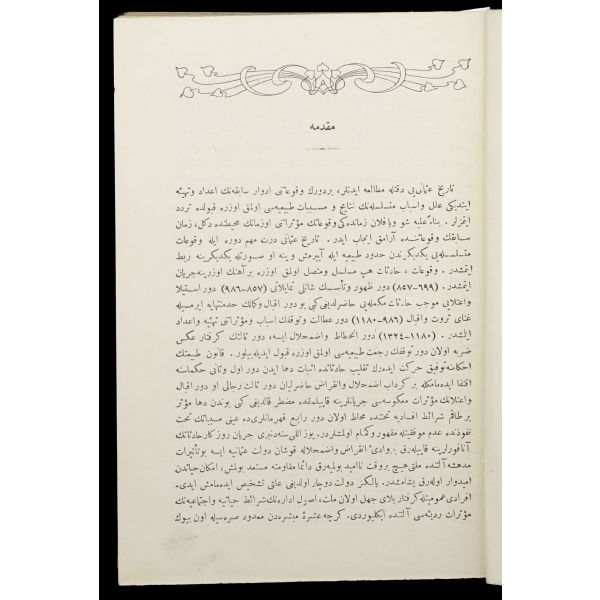 مقدمه
تاریخ عثمانی‌یی دقتله مطالعه ایدنلر، بردورك وقوعاتنی ادوار سابقه‌نك اعداد وتهیئه
ایتدیكی علل واسباب متسلسله‌نك نتایج و مسببات طبیعیه‌سی اولمق اوزره قبولده تردد
ایتمزلر. بناءً علیه شو ویا فلان زمانده‌كی وقوعاتك مؤثراتنی اوزمانك محیطنده دكل، زمان
سابقك وقوعاتنـده آرامق ایجاب ایدر. تاریخ عثمانی درت مهم دوره ایله وقوعات
متسلسله‌یی یكدیكرندن حدود طبیعیه ایله آییرمش و ینه او صورتله یكدیكرینه ربط
ایتمشدر. وقوعات، حادثات هپ مسلسل ومتصل اولمق اوزره بر آهنك اوزرینه جریان
ایتمشدر. (٦٩٩-٨٥٧) دور ظهور وتأسسك شانلی نمایلاتی (٨٥٧-٩٨٦) دور استیلا
واعتلایی موجب حادثات مكمله‌یی حاضرلدیغی كبی بو دور اقبال وكمالك حدمنتهایه ایرمسیله
غنای ثروت واقبال (٩٨٦-١١٨٠) دور عطالت وتوقفك اسباب ومؤثراتنی تهیئه واعداد
ایلشدر. (١١٨٠-١٣٢٤) دور انحطاط واضمحلال ایسه، دور ثالثك كرفتار عكس
ضربه اولان دور توقفك رجعت طبیعیه‌سی اولمق اوزره قبول ایدیله‌بیلور. قانون طبیعتك
احكامنه توفیق حركت ایده‌رك تقلیب حادثاتده اثبات دها ایدن دور اول وثانی حكماسنه
اقتفا ایده‌مامكله بر كرداب اضمحلال وانقراض حاضرلیان دور ثالث رجالی او دور اقبال
واعتلانك مؤثرات معكوسه‌سی جریانلرینه قاپیلمقده مضطر قالدیغی كبی بوندن دها مؤثر
برطاقم شرائط افسادیه تحتنده محاط اولان دور رابع قهرمانلری‌ده عینی مسبباتك تحت
نفوذنده عدم موفقیتله مقهور وكمنام اولمشلردر. یوز اللی سنه‌دنبری جریان روزكار حادثاتك
آنافورلرینه قاپیله‌رق وادیٔ انقراض واضمحلاله قوشان دولت عثمانیه ایسه بوتأثیرات
مدهشه آلتنده ملتی هیچ بروقت نااميد بولمیه‌رق دائما مقاومته مستعد بولمش، امكان حیاتدن
امیدوار اوله‌رق یشامشدر. یالكز دولت دوچار اولدیغی علتی تشخیص ایده‌مامش ایدی.
افرادی عمومیتله كرفتار بلای جهل اولان ملت، اصول اداره‌نك شرائط حیاتیه واجتماعیه‌نك
مؤثرات ردیئه‌سی آلتنده ایكلیوردی. كرچه عشرهٔ مبشره‌دن معدود صره‌سیله اون بیوك